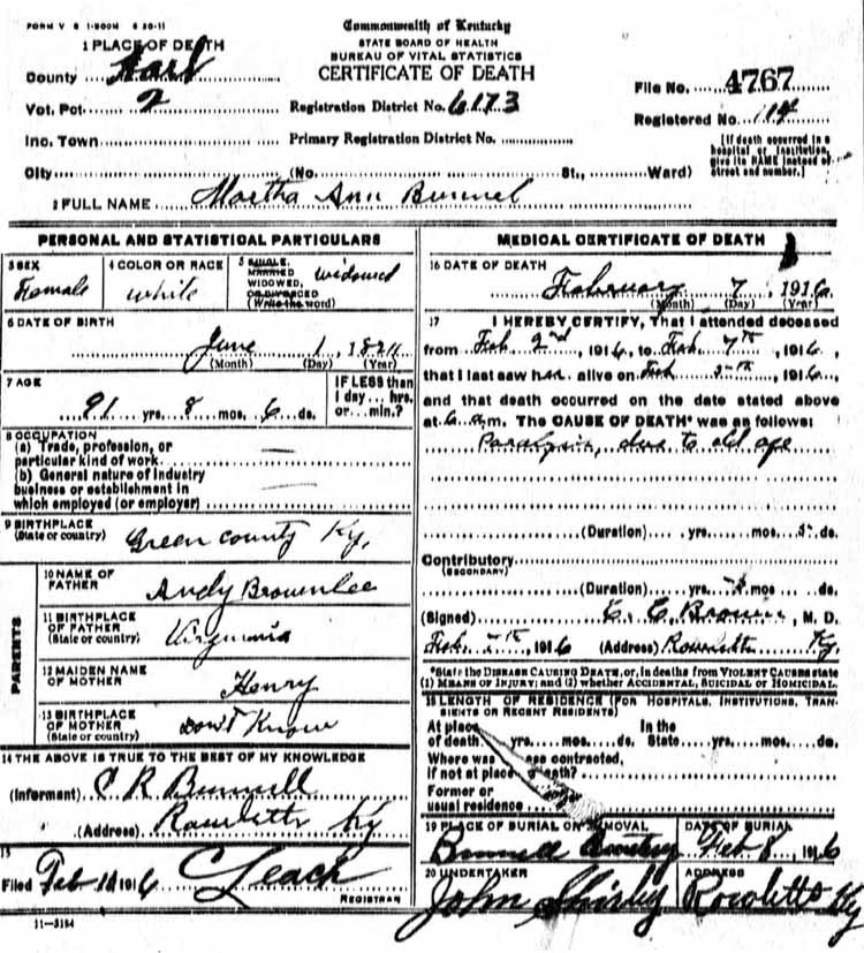 FORM V S 1-800M 6 30-11
Commonwealth of Kentucky
STATE BOARD OF HEALTH
BUREAU OF VITAL STATISTICS
CERTIFICATE OF DEATH
1 PLACE OF DEATH
County Hart
Vot. Pct. 2
Registration District No. 6173
File No. 4767
Registered No. 114
Inc. Town
Primary Registration District No.
[If death occurred in a hospital or institution, give its NAME instead of street and number.]
City (No. St., Ward)
2 FULL NAME Martha Ann Bunnel
PERSONAL AND STATISTICAL PARTICULARS
3 SEX Female
4 COLOR OR RACE white
5 SINGLE, MARRIED WIDOWED, OR DIVORCED (Write the word) widowed
6 DATE OF BIRTH
June 1, 1824
(Month) (Day) (Year)
7 AGE
91 yrs. 8 mos. 6 ds.
IF LESS than 1 day... hrs. or... min.?
8 OCCUPATION
(a) Trade, profession, or
particular kind of work
(b) General nature of industry
business or establishment in
which employed (or employer)
9 BIRTHPLACE
(State or country) Green county Ky.
PARENTS
10 NAME OF FATHER Andy Brownlee
11 BIRTHPLACE OF FATHER (State or country) Virginnia
12 MAIDEN NAME OF MOTHER Henry
13 BIRTHPLACE OF MOTHER (State or country) don't Know
14 THE ABOVE IS TRUE TO THE BEST OF MY KNOWLEDGE
(Informant) C R Bunnell
(Address) Rowletts Ky
15
Filed Feb 1916 C Leach
REGISTRAR
11-3184
MEDICAL CERTIFICATE OF DEATH
16 DATE OF DEATH
February 7, 1916
(Month) (Day) (Year)
17 I HEREBY CERTIFY, That I attended deceased
from Feb. 2nd, 1916, to Feb. 7th, 1916,
that I last saw her alive on Feb 5th, 1916,
and that death occurred on the date stated above
at 6 a.m. The CAUSE OF DEATH* was as follows:
Paralysis, due to old age
(Duration) yrs. mos. 5 ds.
Contributory
(SECONDARY)
(Duration) yrs. mos. ds.
(Signed) C. C. Brown, M. D.
Feb. 1916 (Address) Rowletts Ky.
*State the DISEASE CAUSING DEATH, or, in deaths from VIOLENT CAUSES state
(1) MEANS OF INJURY; and (2) whether ACCIDENTAL, SUICIDAL or HOMICIDAL.
18 LENGTH OF RESIDENCE (FOR HOSPITALS, INSTITUTIONS, TRANSIENTS OR RECENT RESIDENTS)
At place In the
of death yrs. mos. ds. State yrs. mos. ds.
Where was contracted,
If not at place of death?
Former or
usual residence
19 PLACE OF BURIAL OR REMOVAL
Bunnell
DATE OF BURIAL
Feb 8, 1916
20 UNDERTAKER
John Shirley
ADDRESS
Rowletts Ky